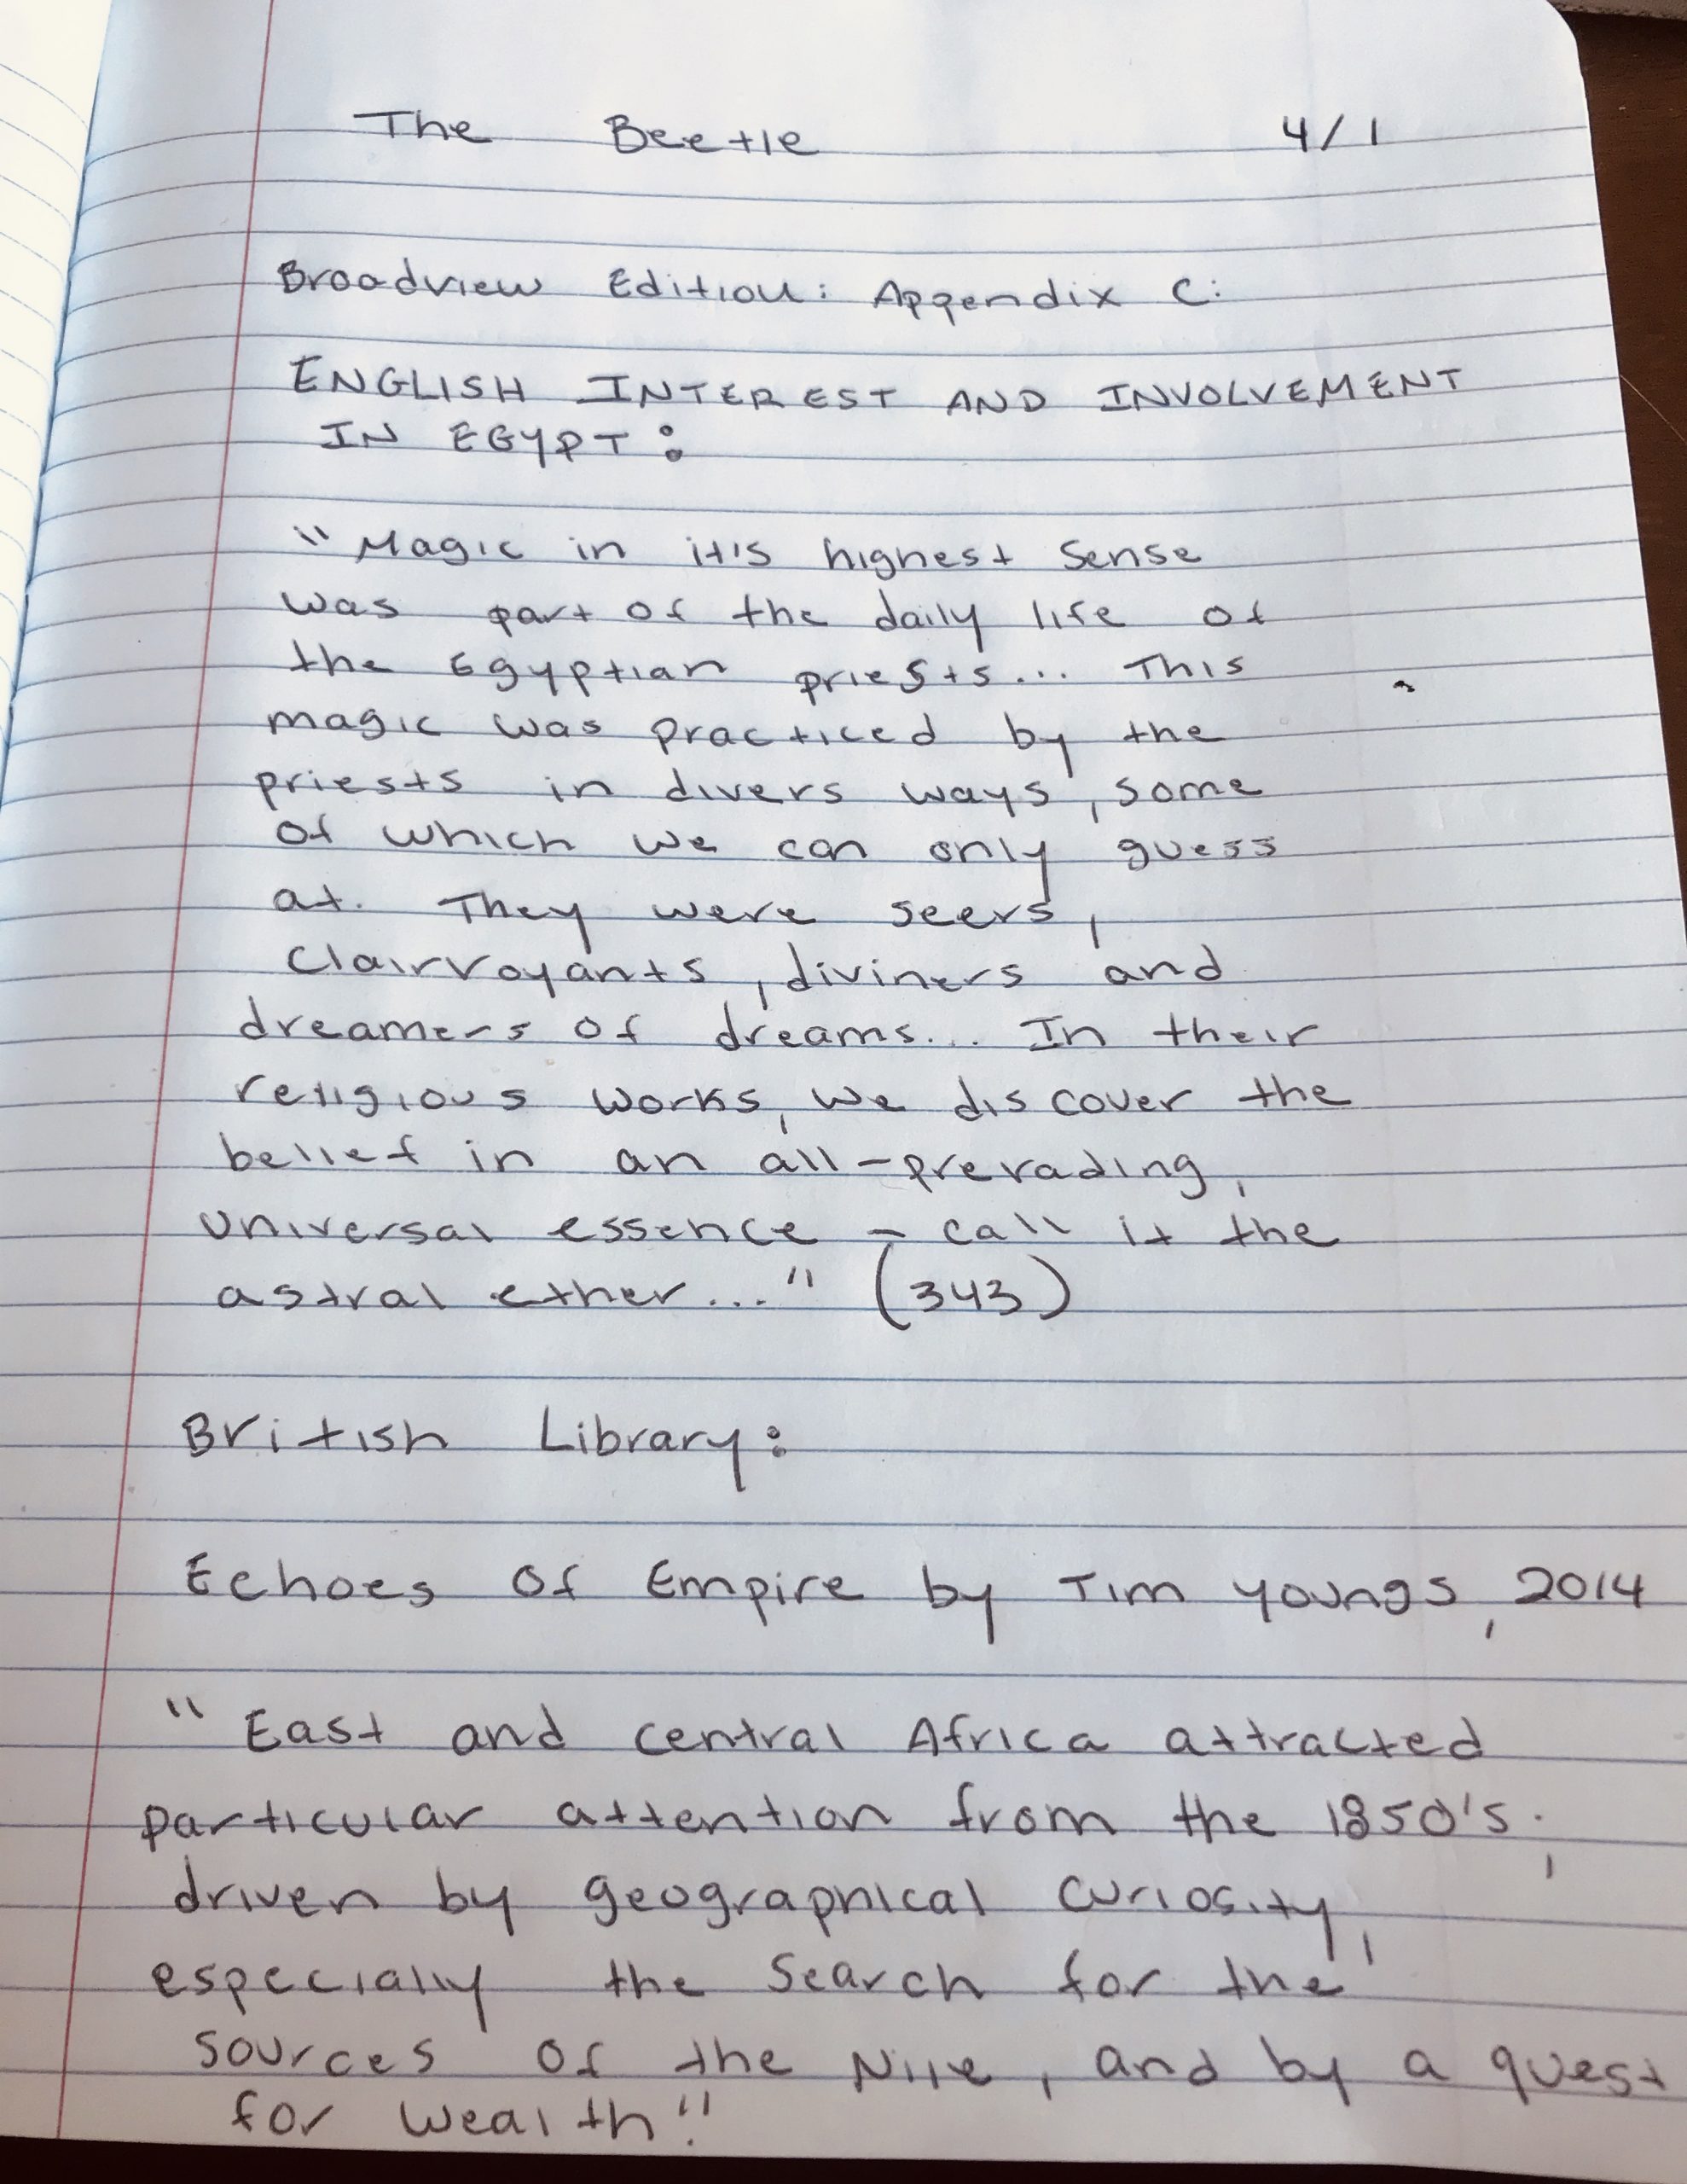 The Beetle 4/1
Broadview Edition: Appendix C:
ENGLISH INTEREST AND INVOLVEMENT
IN EGYPT:
"Magic in it's highest sense
was part of the daily life of
the Egyptian priests... This
magic was practiced by the
priests in divers ways, some
of which we can only guess
at. They were seers,
clairvoyants, diviners and
dreamers of dreams... In their
religious works, we discover the
belief in an all-prevading,
universal essence - call it the
astral ether..." (343)
British Library:
Echoes of Empire by Tim Youngs, 2014
"East and central Africa attracted
particular attention from the 1850's;
driven by geographical curiosity,
especially the search for the
sources of the Nile, and by a quest
for wealth."